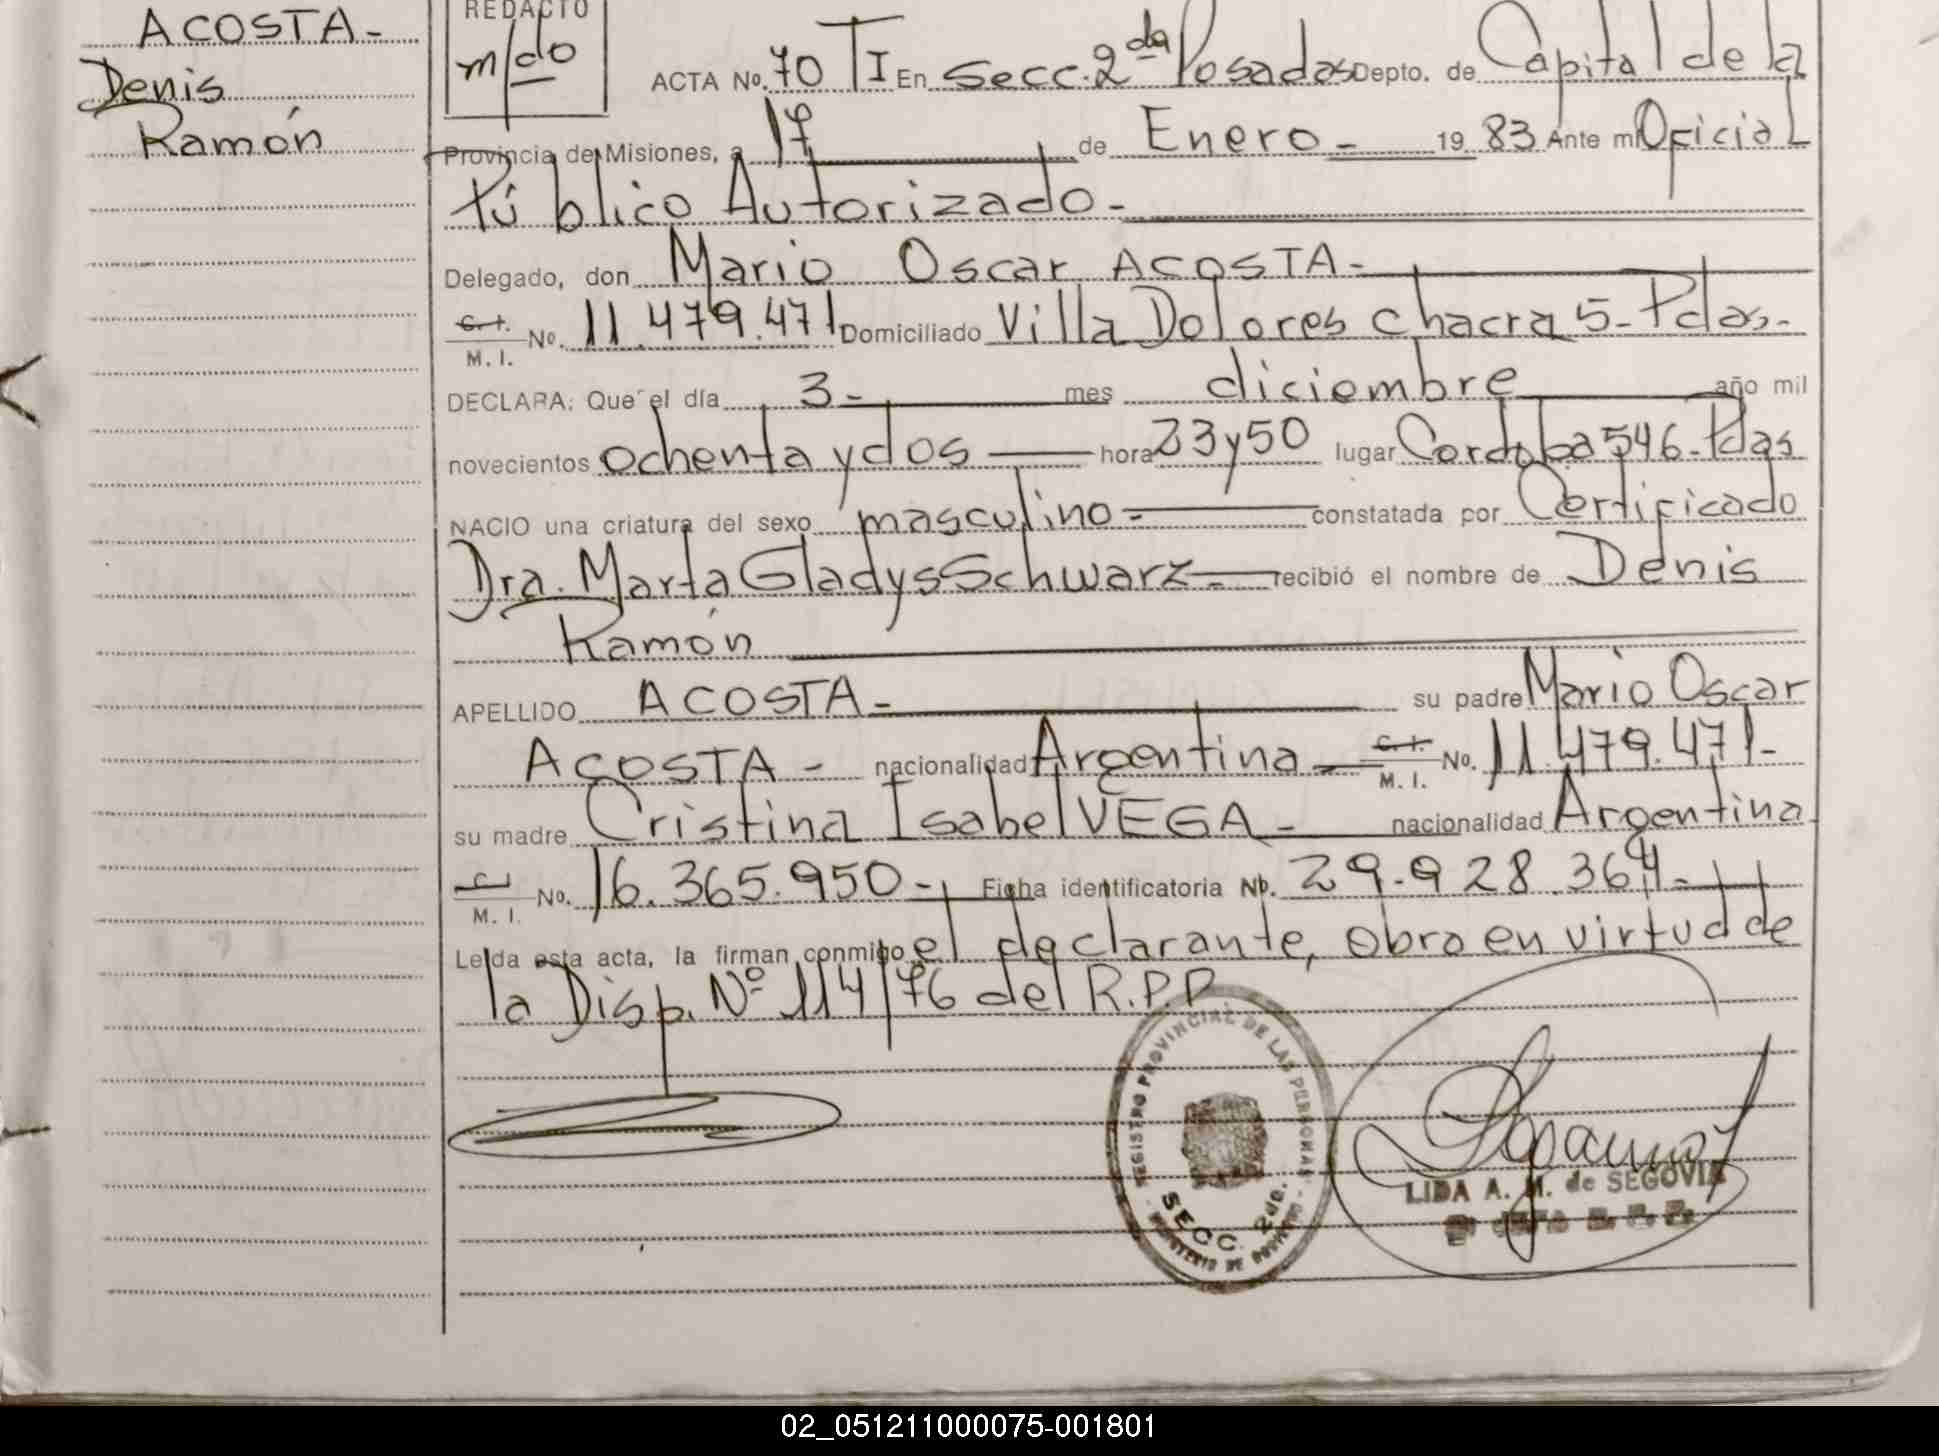 ACOSTA-
Denis
Ramón
REDACTO
m/do
ACTA No. 70 TI En Secc. 2da Posadas Depto. de Capital de la
Provincia de Misiones, a 17 de Enero - 1983 Ante mí Oficial
Público Autorizado-
Delegado, don Mario Oscar ACOSTA-
C. I. M. I. No. 11.479.471 Domiciliado Villa Dolores chacra 5- Pdas.-
DECLARA: Que el día 3- mes diciembre año mil
novecientos ochenta y dos hora 23 y 50 lugar Cordoba 546- Pdas
NACIO una criatura del sexo masculino- constatada por Certificado
Dra. Marta Gladys Schwarz- recibió el nombre de Denis
Ramón
APELLIDO ACOSTA- su padre Mario Oscar
ACOSTA- nacionalidad Argentina- C. I. M. I. No. 11.479.471-
su madre Cristina Isabel VEGA- nacionalidad Argentina
C I M. I. No. 16.365.950- Ficha identificatoria No. 29.928.364-
Leída esta acta, la firman conmigo el declarante, obro en virtud de
la Disp. Nº 114/76 del R.P.P.
REGISTRO PROVINCIAL DE LAS PERSONAS
SECC. 2da.
MINISTERIO DE GOBIERNO
LIDA A. M. de SEGOVIA
02_051211000075-001801